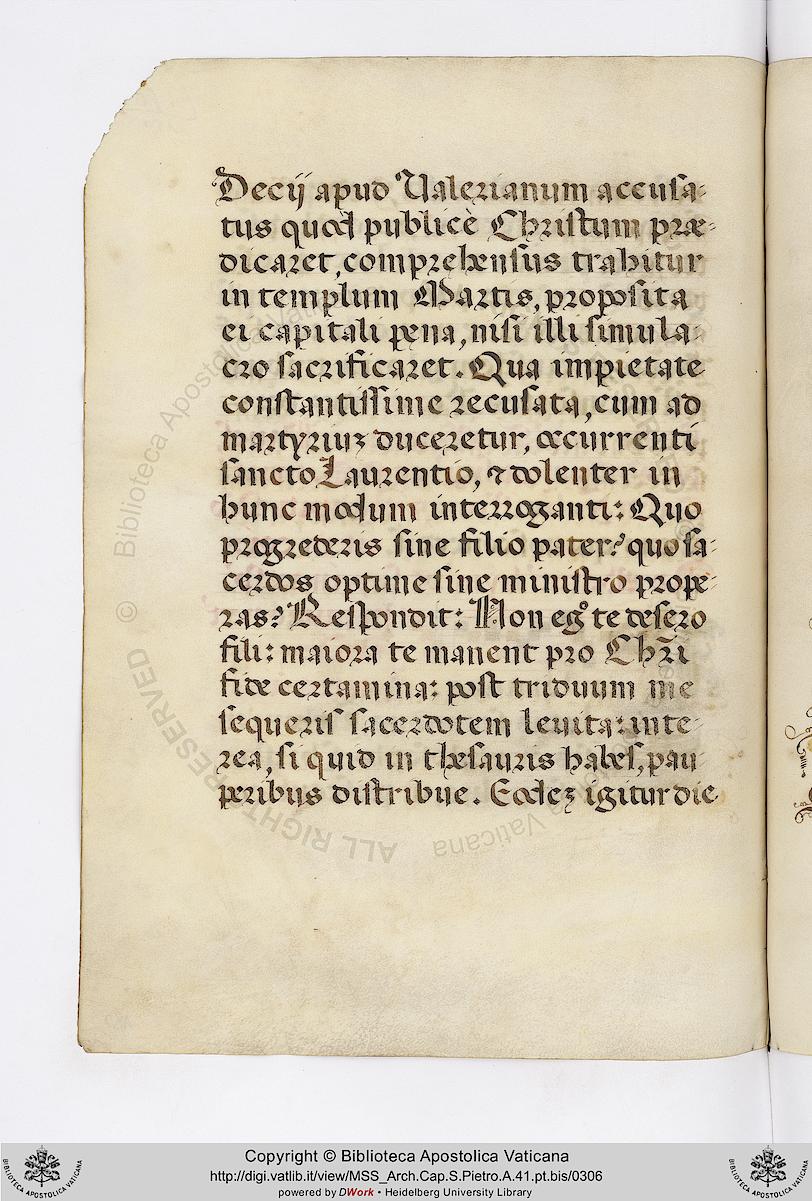 Decij apud Valerianum accusa-
tus quod publicè Christum præ-
dicaret, comprehensus trahitur
in templum Martis, proposita
ei capitali pena, nisi illi simula-
cro sacrificaret. Qua impietate
constantissime recusata, cum ad
martyriuʒ duceretur, occurrenti
sancto Laurentio, ⁊ dolenter in
hunc modum interroganti: Quo
progrederis sine filio pater? quo sa-
cerdos optime sine ministro prope-
ras? Respondit: Non egº te desero
fili: maiora te manent pro Chr̄i
fide certamina: post triduum me
sequeris sacerdotem leuita: inte-
rea, si quid in thesauris habes, pau-
peribus distribue. Eodeʒ igitur die
© Biblioteca Apostolica Vaticana
ALL RIGHTS RESERVED
Copyright © Biblioteca Apostolica Vaticana
http://digi.vatlib.it/view/MSS_Arch.Cap.S.Pietro.A.41.pt.bis/0306
powered by DWork • Heidelberg University Library
BIBLIOTECA APOSTOLICA VATICANA
BIBLIOTECA APOSTOLICA VATICANA